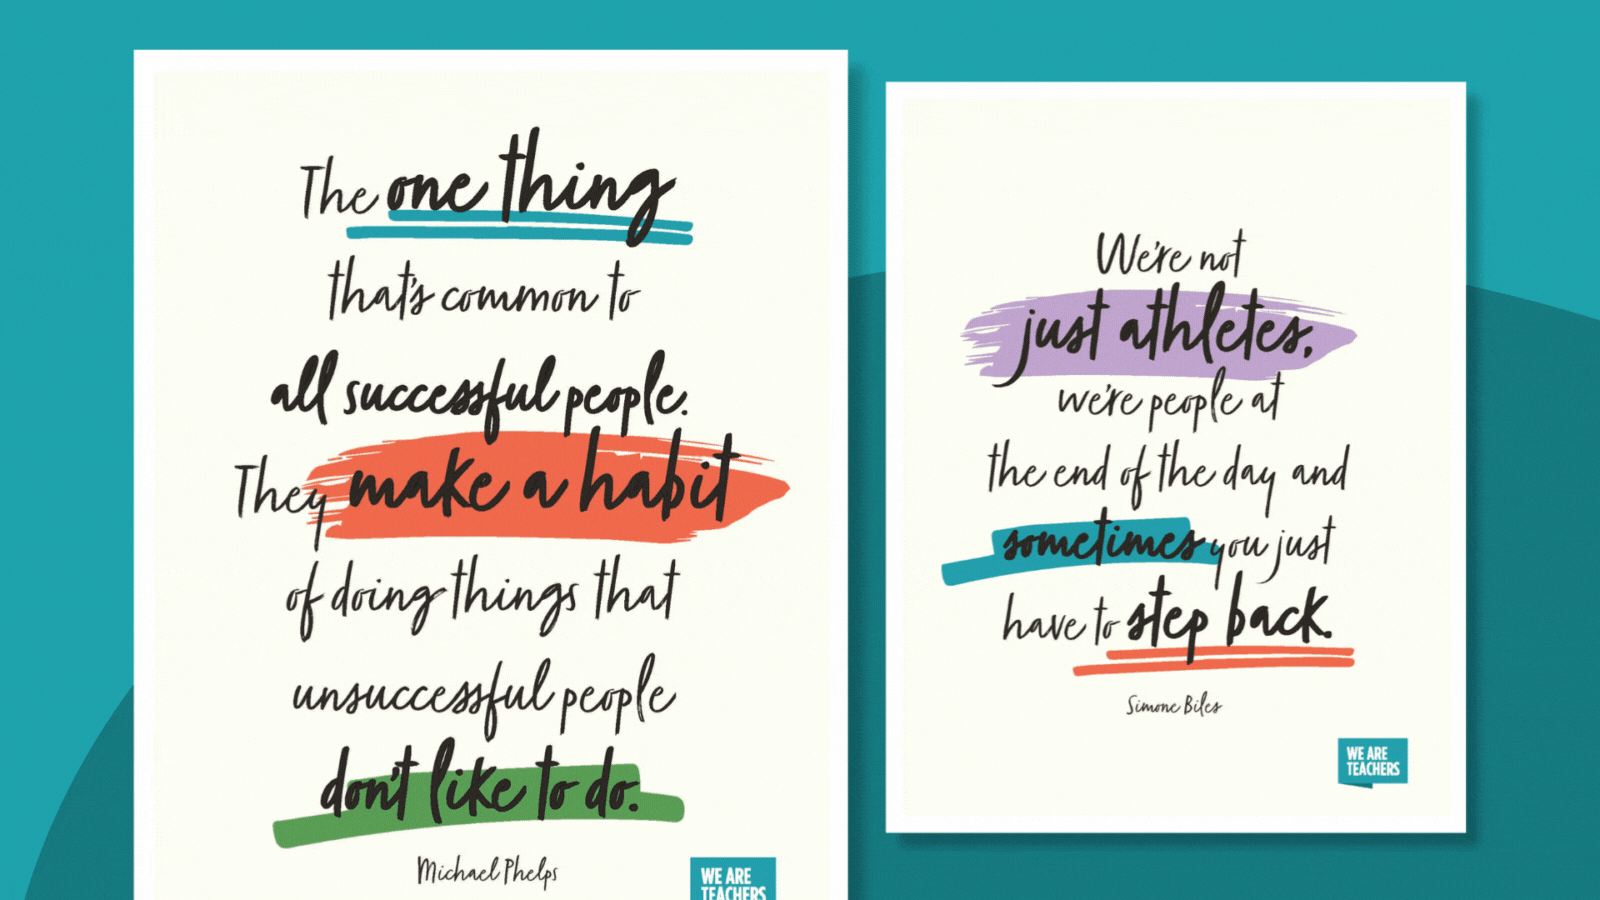 The one thing
that's common to
all successful people.
They make a habit
of doing things that
unsuccessful people
don't like to do.
Michael Phelps
WE ARE
TEACHERS
We're not
just athletes,
we're people at
the end of the day and
sometimes you just
have to step back.
Simone Biles
WE ARE
TEACHERS